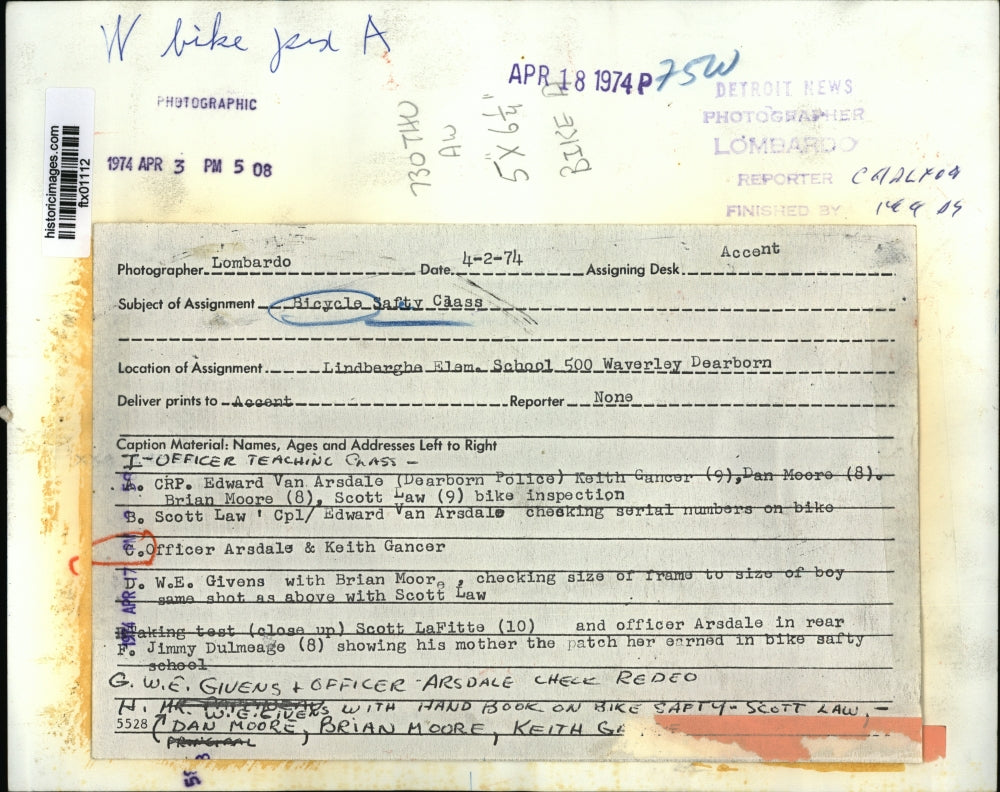 W bike A
APR 18 1974 P 75W
PHOTOGRAPHIC
1974 APR 3 PM 5 08
historicimages.com
ftx01112
730THU
AW
5" X 6¼"
BIKE
DETROIT NEWS
PHOTOGRAPHER
LOMBARDO
REPORTER
FINISHED BY
Photographer Lombardo Date 4-2-74 Assigning Desk Accent
Subject of Assignment Bicycle Safty Class
Location of Assignment Lindberghe Elem. School 500 Waverley Dearborn
Deliver prints to Accent Reporter None
Caption Material: Names, Ages and Addresses Left to Right
I-OFFICER TEACHING CLASS -
A. CRP. Edward Van Arsdale (Dearborn Police) Keith Gancer (9), Dan Moore (8).
Brian Moore (8), Scott Law (9) bike inspection
B. Scott Law ' Cpl/ Edward Van Arsdale cheking serial numbers on bike
C. Officer Arsdale & Keith Gancer
D. W.E. Givens with Brian Moore , checking size of frame to size of boy
same shot as above with Scott Law
Taking test (close up) Scott LaFitte (10) and officer Arsdale in rear
F. Jimmy Dulmeage (8) showing his mother the patch her earned in bike safty
school
G. W.E. GIVENS + OFFICER ARSDALE CHECK REDEO
H. MR.
W.E. GIVENS WITH HAND BOOK ON BIKE SAFTY - SCOTT LAW, -
5528 (DAN MOORE, BRIAN MOORE, KEITH GA
PRINCIPAL
1974 APR 17 PM